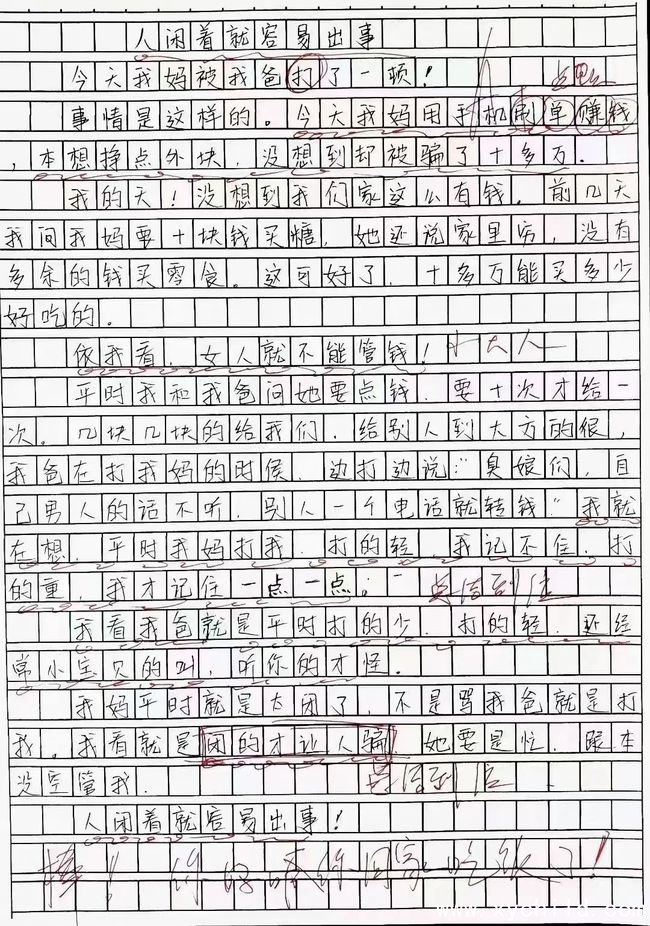 人闲着就容易出事
今天我妈被我爸打了一顿！
点
事情是这样的。今天我妈用手机刷单赚钱
，本想挣点外块，没想到却被骗了十多万。
我的天！没想到我们家这么有钱。前几天
我问我妈要十块钱买糖，她还说家里穷，没有
多余的钱买零食。这可好了，十多万能买多少
好吃的。
依我看，女人就不能管钱！
平时我和我爸问她要点钱，要十次才给一
次。几块几块的给我们，给别人到大方的很，
我爸在打我妈的时候，边打边说："臭娘们，自
己男人的话不听，别人一个电话就转钱"我就
在想，平时我妈打我，打的轻，我记不住，打
的重，我才记住一点一点；
点活到位
我看我爸就是平时打的少，打的轻，还经
常小宝贝的叫，听你的才怪。
我妈平时就是太闲了，不是骂我爸就是打
我。我看就是闲的才让人骗！她要是忙，跟本
没空管我。
点活到位
人闲着就容易出事！
棒！你妈喊你回家吃饭了！